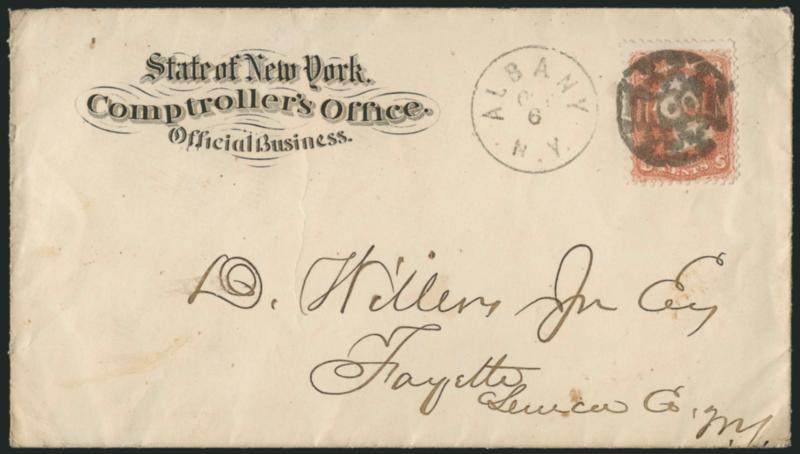 State of New York.
Comptroller's Office.
Official Business.
ALBANY
6
N.Y.
CENTS
D. Willers Jr Esq
Fayette
Seneca Co. N.Y.